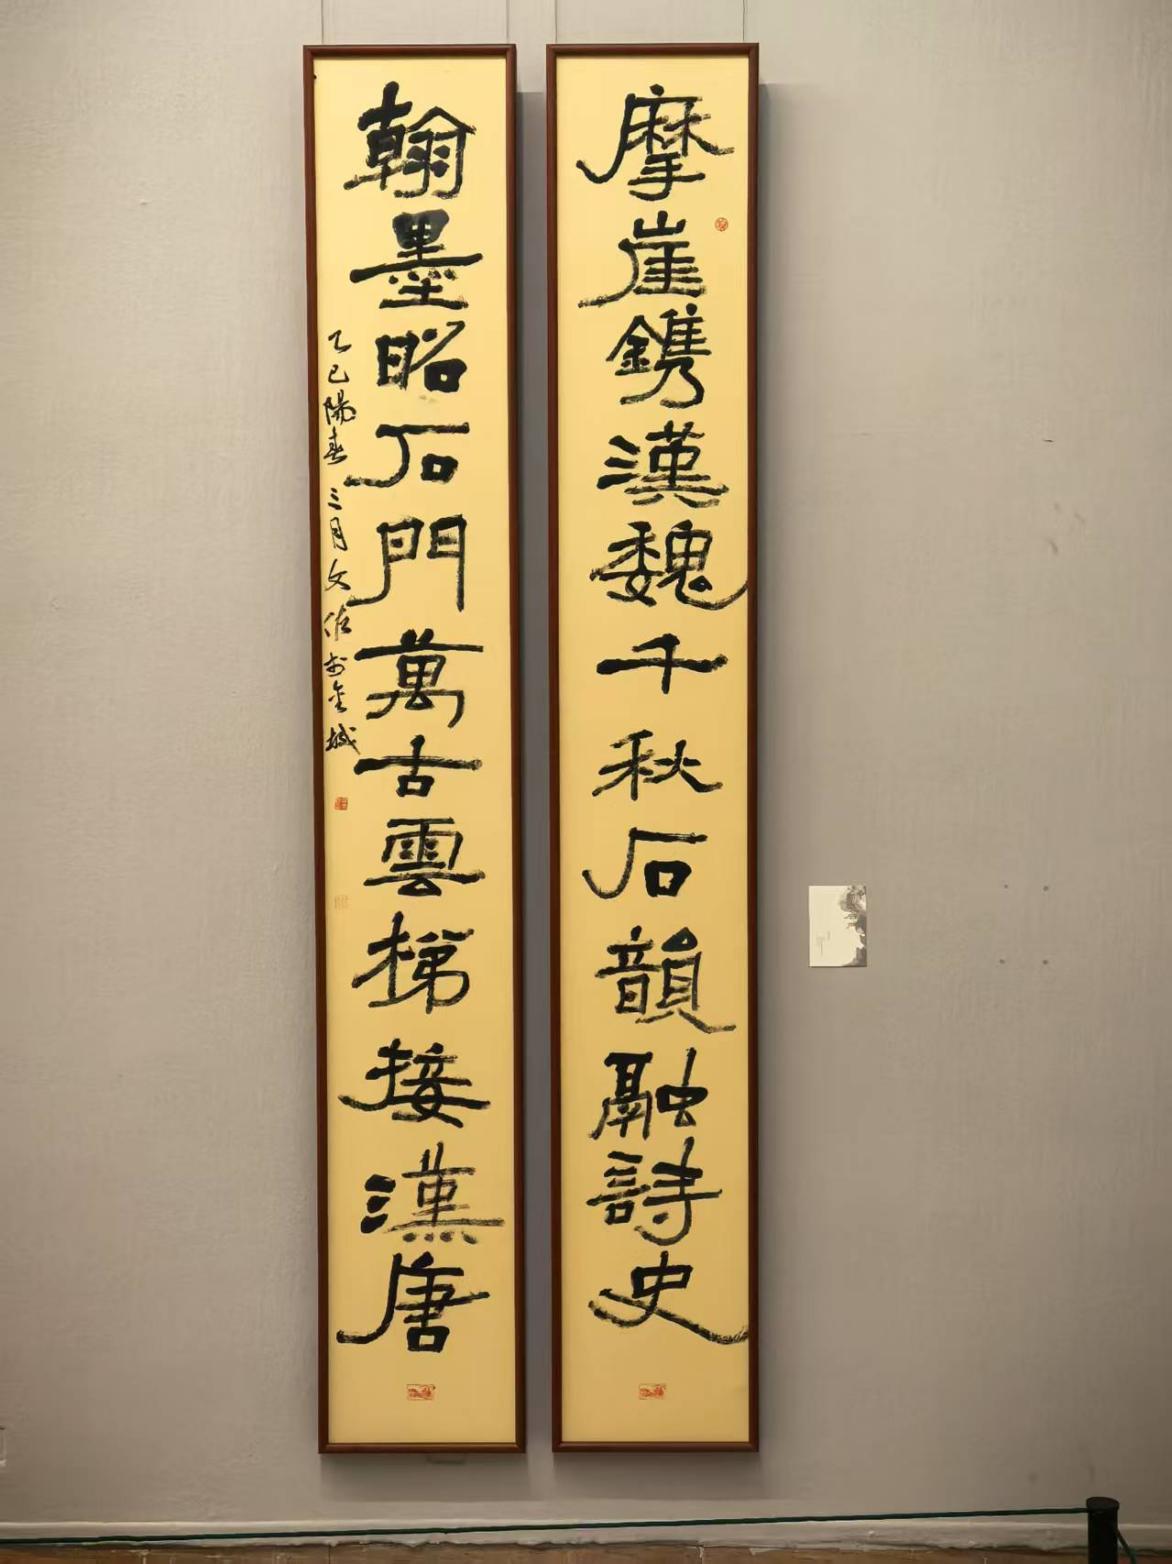 摩崖鐫漢魏千秋石韻融詩史
翰墨昭石門萬古雲梯接漢唐
乙巳陽春三月文佐書金城